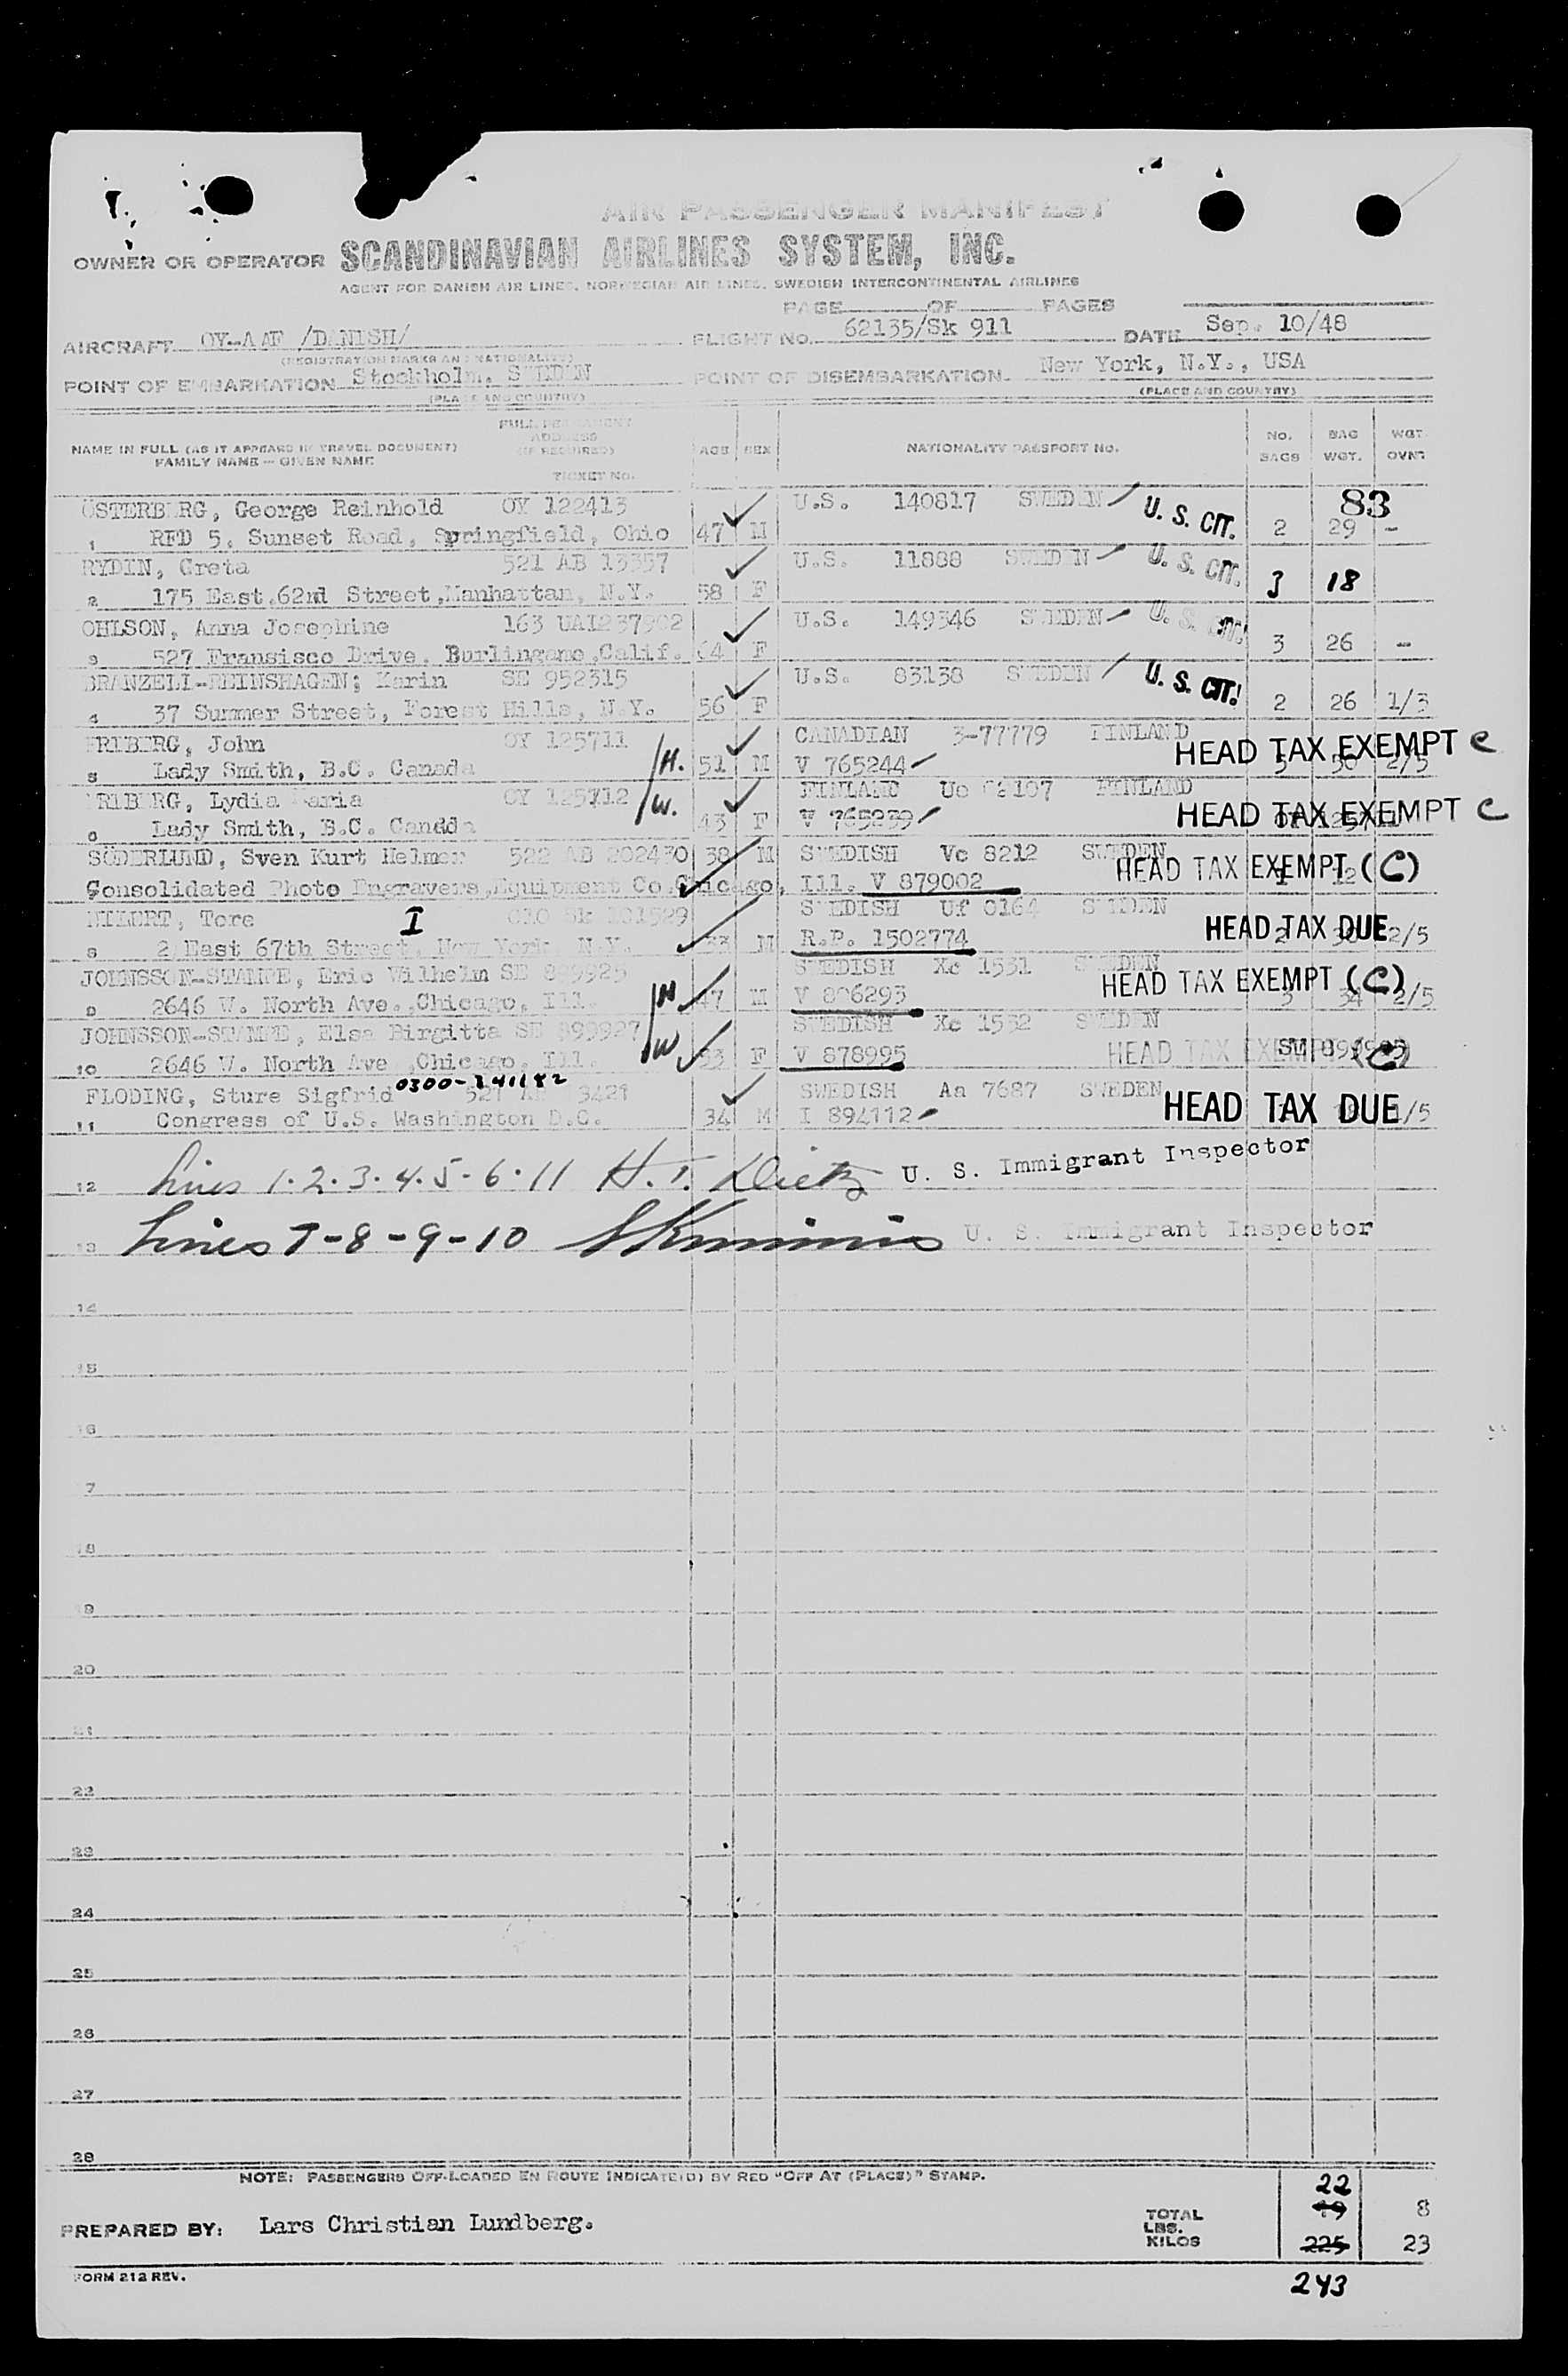 AIR PASSENGER MANIFEST
OWNER OR OPERATOR SCANDINAVIAN AIRLINES SYSTEM, INC.
AGENT FOR DANISH AIR LINES, NORWEGIAN AIR LINES, SWEDISH INTERCONTINENTAL AIRLINES
PAGE OF PAGES
AIRCRAFT OY-AAF /DANISH/ FLIGHT NO. 62135/Sk 911 DATE Sep. 10/48
(REGISTRATION MARKS AND NATIONALITY)
POINT OF EMBARKATION Stockholm, SWEDEN POINT OF DISEMBARKATION New York, N.Y., USA
(PLACE AND COUNTRY) (PLACE AND COUNTRY)
NAME IN FULL (AS IT APPEARS IN TRAVEL DOCUMENT) FAMILY NAME — GIVEN NAME FULL PERMANENT ADDRESS (IF REQUIRED) TICKET No. AGE SEX NATIONALITY PASSPORT NO. No. BAGS BAG WGT. WGT. OVNT
83
ÖSTERBERG, George Reinhold OY 122413 U.S. 140817 SWEDEN U. S. CIT.
1 RFD 5, Sunset Road, Springfield, Ohio 47 M 2 29 -
RYDIN, Greta 521 AB 13357 U.S. 11888 SWEDEN U. S. CIT.
2 175 East.62nd Street,Manhattan, N.Y. 58 F 3 18
OHLSON, Anna Josephine 163 UAI237902 U.S. 149346 SWEDEN U. S. CIT!
3 527 Fransisco Drive. Burlingame,Calif. 64 F 3 26 -
BRANZELL-REINSHAGEN; Karin SE 952315 U.S. 83138 SWEDEN U. S. CIT!
4 37 Summer Street, Forest Hills, N.Y. 56 F 2 26 1/3
FRIBERG, John OY 125711 CANADIAN 3-77779 FINLAND HEAD TAX EXEMPT C
5 Lady Smith, B.C. Canada H. 51 M V 765244 2/5
FRIBERG, Lydia Maria OY 125712 FINLAND FINLAND HEAD TAX EXEMPT C
6 Lady Smith, B.C. Canada W. 43 F V 765239
SÖDERLUND, Sven Kurt Helmer 522 AB 202430 38 M SWEDISH Vc 8212 SWEDEN HEAD TAX EXEMPT (C)
Consolidated Photo Engravers,Equipment Co.Chicago, Ill. V 879002
Tore I SWEDISH Uf 0164 SWEDEN HEAD TAX DUE
8 2 East 67th Street, New York N.Y. 33 M R.P. 1502774 2/5
JOHNSSON-STAMPE, Eric Wilhelm SE SWEDISH Xc 1531 SWEDEN HEAD TAX EXEMPT (C)
9 2646 W. North Ave.,Chicago, Ill. H 47 M V 886293 3 34 2/5
JOHNSSON-STAMPE, Elsa Birgitta SE 899927 SWEDISH Xc 1532 SWEDEN HEAD TAX EXEMPT (C)
10 2646 W. North Ave ,Chicago, Ill. W 53 F V 878995
0300-241182
FLODING, Sture Sigfrid SWEDISH Aa 7687 SWEDEN HEAD TAX DUE
11 Congress of U.S. Washington D.C. 34 M I 894112 1/5
12 Lines 1.2.3.4.5-6.11 H.T. Dietz U. S. Immigrant Inspector
13 Lines 7-8-9-10 U. S. Immigrant Inspector
14
15
16
7
18
19
20
21
22
23
24
25
26
27
28
NOTE: PASSENGERS OFF-LOADED EN ROUTE INDICATE(D) BY RED "OFF AT (PLACE)" STAMP.
22
PREPARED BY: Lars Christian Lundberg. TOTAL 19 8
LBS.
KILOS 225 23
FORM 212 REV. 243